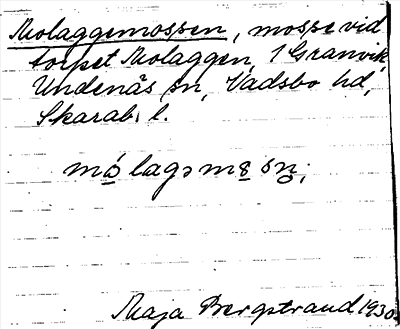 Molaggemossen, mosse vid
torpet Molaggen, 1 Granvik,
Undenås sn, Vadsbo hd,
Skarab. l.
Maja Bergstrand 1930.